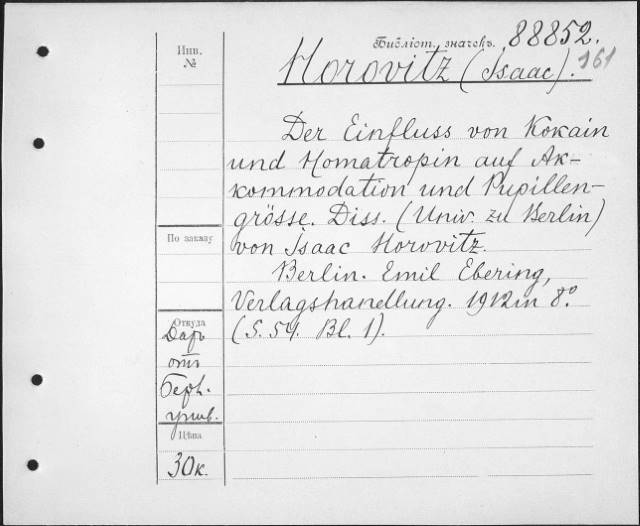 Инв.
№
Библіот. значекъ. 88852.
161
Horovitz (Isaac).
Der Einfluss von Kokain
und Homatropin auf Ak-
kommodation und Pupillen-
grösse. Diss. (Univ. zu Berlin)
von Isaac Horovitz.
Berlin. Emil Ebering,
Verlagshandlung. 1912 in 8°.
(S. 54. Bl. 1).
По заказу
Откуда
Даръ
отъ
Берл.
унив.
Цѣна
30 к.